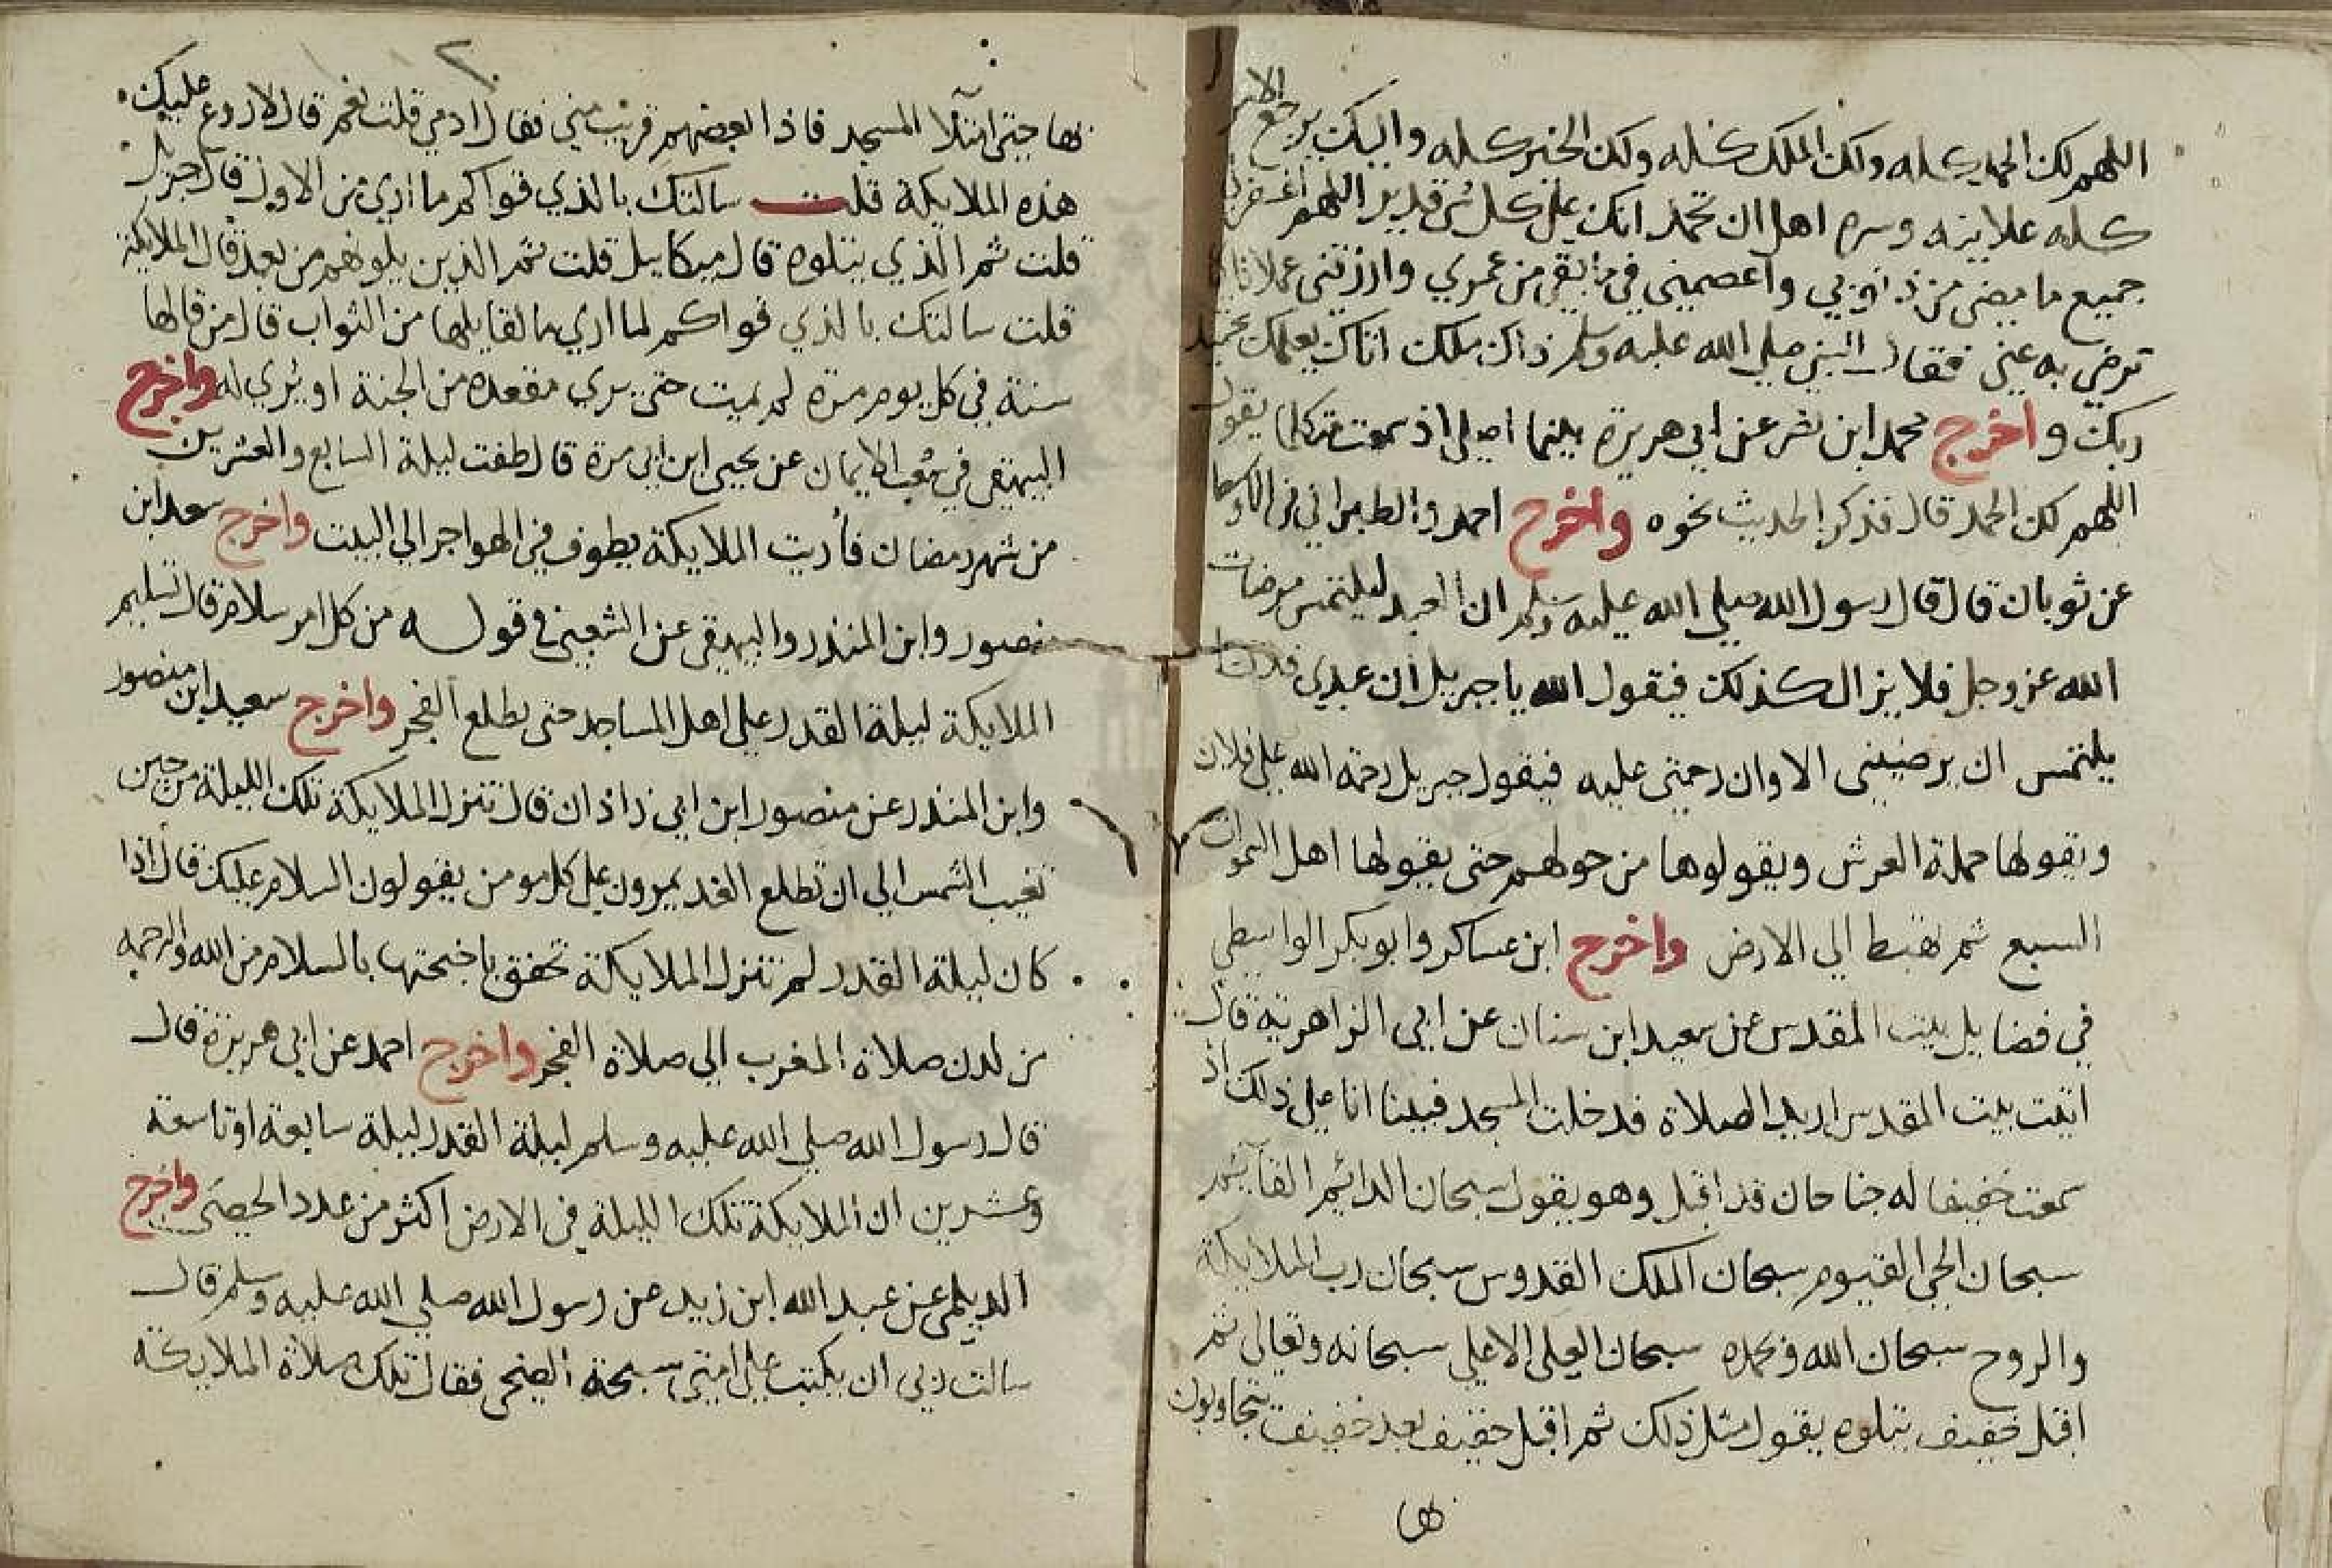 اللهم لك الحمد كله ولك الملك كله ولك الخير كله واليك يرجع الامر
كله علانيته وسره اهل ان تحمد انك على كل شي قدير اللهم اغفر لي
جميع ما مضى من ذنوبي واعصمني في ما بقى من عمري وارزقني عملا
ترضى به عني فقال النبي صلي الله عليه وسلم ذاك ملك اتاك يعلمك تحميد
ربك واخرج محمد ابن نصر عن ابي هريرة بينما اصلي اذ سمعت متكلما يقول
اللهم لك الحمد قال فذكر الحديث نحوه واخرج احمد والطبراني في الاوسط
عن ثوبان قال قال رسول الله صلي الله عليه وسلم ان العبد ليلتمس مرضات
الله عز وجل فلا يزال كذلك فيقول الله يا جبريل ان عبدي فلانا
يلتمس ان يرضيني الا وان رحمتي عليه فيقول جبريل رحمة الله علي فلان
ويقولها حملة العرش ويقولوها من حولهم حتى يقولها اهل السموات
السبع ثم تهبط الي الارض واخرج ابن عساكر وابو بكر الواسطي
في فضايل بيت المقدس عن سعيد ابن سنان عن ابي الزاهرية قال
اتيت بيت المقدس اريد الصلاة فدخلت المسجد فبينا انا علي ذلك اذ
سمعت خفيفا له جناحان قد اقبل وهو يقول سبحان الدائم القآئم
سبحان الحي القيوم سبحان الملك القدوس سبحان رب الملايكة
والروح سبحان الله وبحمده سبحان العلى الاعلي سبحانه وتعالى ثم
اقبل خفيف يتلوه يقول مثل ذلك ثم اقبل خفيف بعد خفيف يتجاوبون
بها
٢٠
بها حتى امتلا المسجد فاذا بعضهم قريب مني فقال ادمي قلت نعم قال لا روع عليك
هذه الملايكة قلت سالتك بالذي قواكم ما اري من الاول قال جبريل
قلت ثم الذي يتلوه قال ميكاييل قلت ثم الذين يلونهم من بعد قال الملايكة
قلت سالتك بالذي قواكم لما اري ما لقايلها من الثواب قال من قالها
سنة في كل يوم مرة لم يميت حتى يري مقعده من الجنة او يري له واخرج
البيهقى في شعب الايمان عن يحيى ابن ابي مرة قال طفت ليلة السابع والعشرين
من شهر رمضان فأريت الملايكة يطوف في الهواجر الي البيت واخرج سعد ابن
منصور وابن المنذر والبيهقى عن الشعبي في قوله من كل امر سلام قال تسليم
الملايكة ليلة القدر علي اهل المساجد حتى يطلع الفجر واخرج سعيد ابن منصور
وابن المنذر عن منصور ابن ابي زاذان قال تنزل الملايكة تلك الليلة من حين
تغيب الشمس الي ان تطلع الغد يمرون على كل مومن يقولون السلام عليك قال اذا
كان ليلة القدر لم تتنزل الملايكة تخفق باجنحتها بالسلام من الله والرحمه
من لدن صلاة المغرب الي صلاة الفجر واخرج احمد عن ابي هريرة قال
قال رسول الله صلي الله عليه وسلم ليلة القدر ليلة سابعة او تاسعة
وعشرين ان الملايكة تلك الليلة في الارض اكثر من عدد الحصى واخرج
الديلمي عن عبد الله ابن زيد عن رسول الله صلي الله عليه وسلم قال
سالت ربي ان يكتب على امتي سبحة الضحى فقال تلك صلاة الملايكة